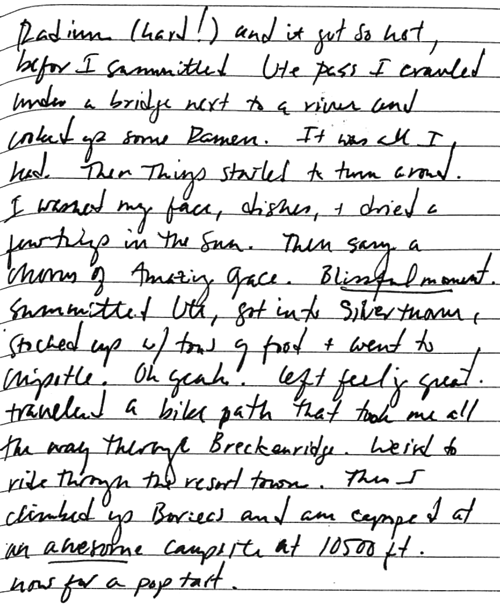 Radium (hard!) and it got so hot,
before I summitted Ute pass I crawled
under a bridge next to a river and
cooked up some Ramen. It was all I
had. Then Things started to turn around.
I washed my face, dishes, + dried a
few things in the sun. Then sang a
chorus of Amazing Grace. Blissful moment.
Summitted Ute, got into Silverthorne,
stocked up w/ tons of food + went to
chipotle. Oh yeah. Left feeling great.
traveled a bike path that took me all
the way through Breckenridge. Weird to
ride through the resort town. Then I
climbed up Boreas and am camped at
an awesome campsite at 10500 ft.
now for a pop tart.